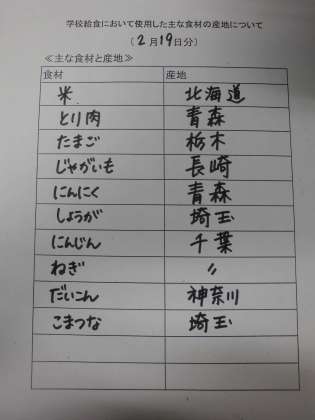 学校給食において使用した主な食材の産地について
（2月19日分）
≪主な食材と産地≫
食材 産地
米 北海道
とり肉 青森
たまご 栃木
じゃがいも 長崎
にんにく 青森
しょうが 埼玉
にんじん 千葉
ねぎ 〃
だいこん 神奈川
こまつな 埼玉